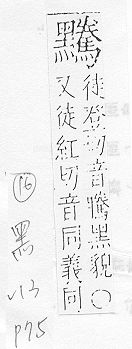 徒登切音騰黑貌○
又徒紅切音同義同
16
黑
v13
P75